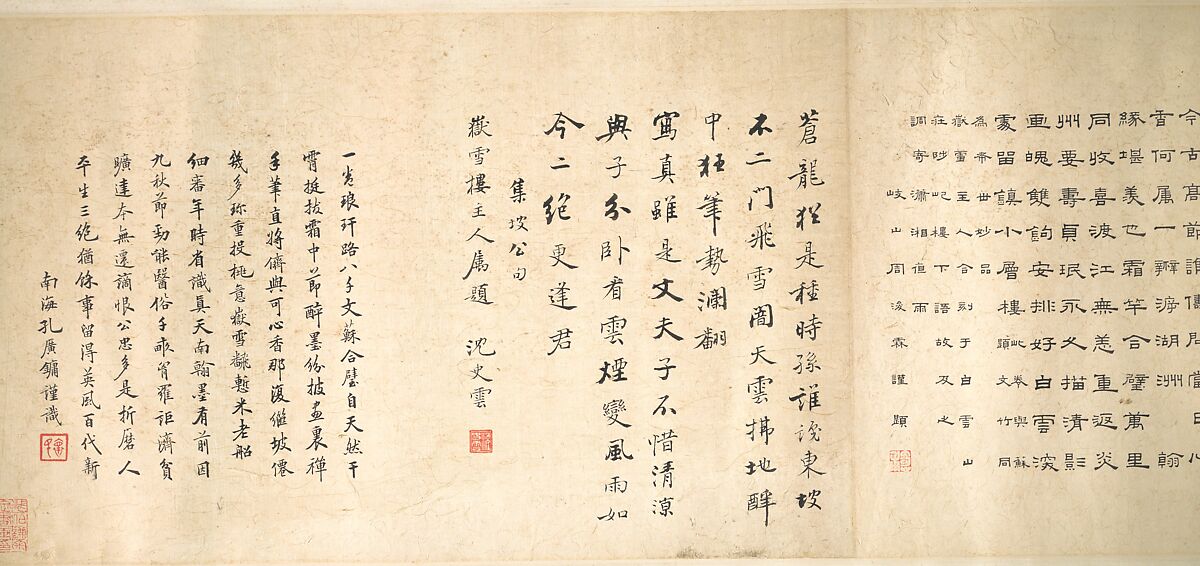 今古高節誰儔開當日心
香何屬一瓣游湖州翰
緣堪羨也霜竿合璧萬里
同收喜渡江無恙重返炎
州要壽貞珉永久描清影
畫魄雙鉤安排好白雲深
處留鎮小層樓 此卷與蘇題文竹同
為希世妙品
嶽雪主人合刻于白雲山
莊時圮樓下語故及之
調寄瀟湘逢雨
岐山周浚霖謹題
蒼龍猶是種時孫誰識東坡
不二門飛雪闇天雲拂地醉
中狂筆勢瀾翻
寫真雖是文夫子不惜清涼
與子分卧看雲煙變風雨如
今二絕更逢君
集坡公句
嶽雪樓主人屬題 沈史雲
一卷琅玕路八千文蘇合璧自天然干
霄挺拔霜中節醉墨紛披畫裏禪
手筆直將儕與可心香那復繼坡僊
幾多珍重投桃意嶽雪齋慙米老船
細審年時有識真天南翰墨有前因
九秋節勁能醫俗千畝胷羅詎濟貧
曠達本無還謫恨公忠多是折磨人
平生三絕猶餘事留得英風百代新
南海孔廣鏞謹識